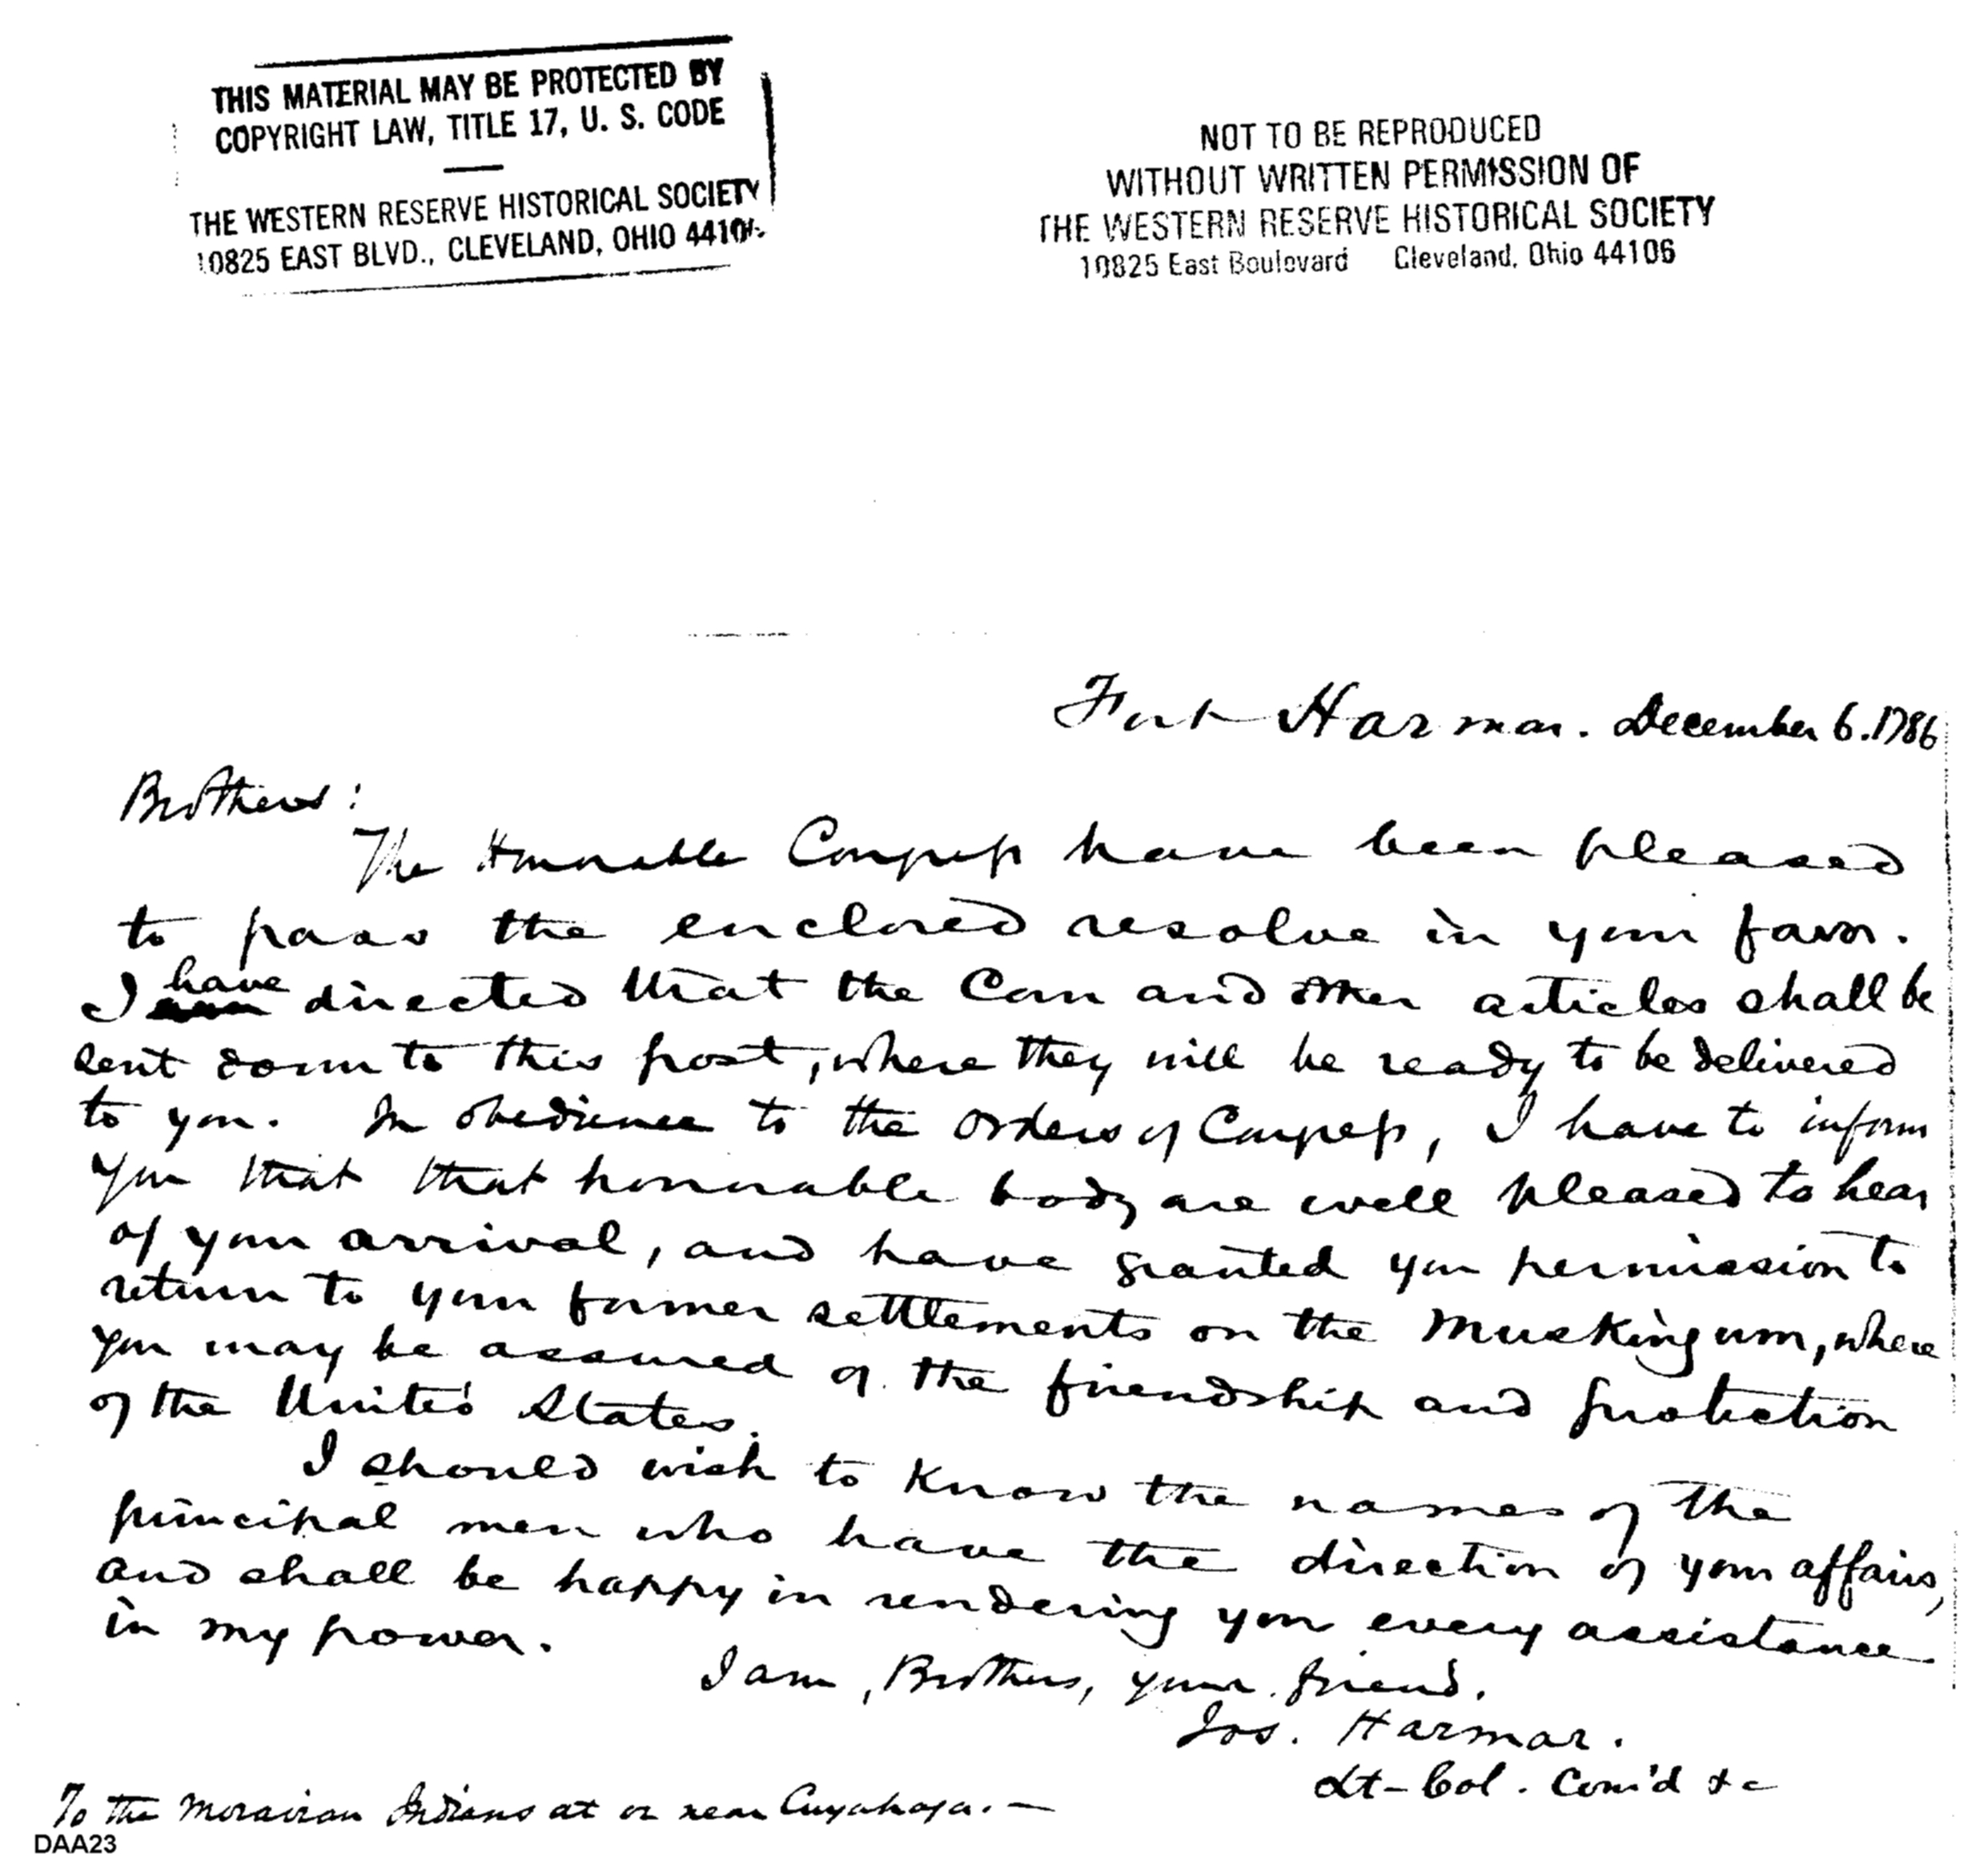 THIS MATERIAL MAY BE PROTECTED BY
COPYRIGHT LAW, TITLE 17, U. S. CODE
THE WESTERN RESERVE HISTORICAL SOCIETY
10825 EAST BLVD., CLEVELAND, OHIO 44106
NOT TO BE REPRODUCED
WITHOUT WRITTEN PERMISSION OF
THE WESTERN RESERVE HISTORICAL SOCIETY
10825 East Boulevard Cleveland, Ohio 44106
Fort Harmar. December 6. 1786
Brothers:
The Honorable Congress have been pleased
to pass the enclosed resolve in your favor.
I have directed that the Corn and other articles shall be
sent down to this post, where they will be ready to be delivered
to you. In obedience to the orders of Congress, I have to inform
you that that honorable body are well pleased to hear
of your arrival, and have granted you permission to
return to your former settlements on the Muskingum, where
you may be assured of the friendship and protection
of the United States.
I should wish to know the names of the
principal men who have the direction of your affairs,
and shall be happy in rendering you every assistance
in my power.
I am, Brothers, your friend.
Jos. Harmar.
Lt-Col. Com'd &c
To the Moravian Indians at or near Cuyahoga. —
DAA23